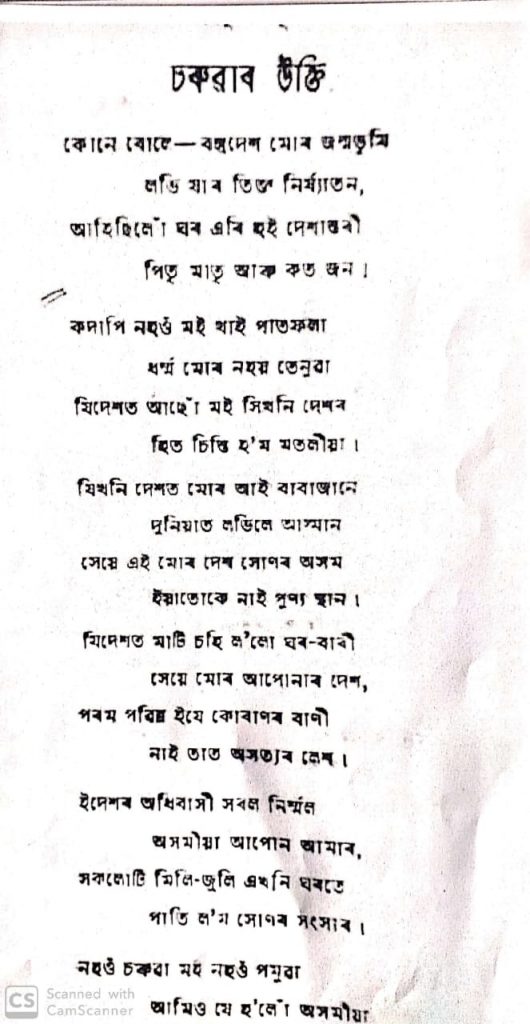 চৰুৱাৰ উক্তি
কোনে বোলে—বঙ্গদেশ মোৰ জন্মভূমি
লভি যাৰ তিক্ত নিৰ্য্যাতন,
আহিছিলোঁ ঘৰ এৰি হই দেশান্তৰী
পিতৃ মাতৃ আৰু কত জন।
কদাপি নহওঁ মই থাই পাতফলা
ধৰ্ম্ম মোৰ নহয় তেনুৱা
যিদেশত আছোঁ মই সিখনি দেশৰ
হিত চিন্তি হ'ম মতলীয়া।
যিখনি দেশত মোৰ আই বাবাজানে
দুনিয়াত লভিলে আস্মান
সেয়ে এই মোৰ দেশ সোণৰ অসম
ইয়াতোকৈ নাই পুণ্য স্থান।
যিদেশত মাটি চহি ল'লো ঘৰ-বাৰী
সেয়ে মোৰ আপোনাৰ দেশ,
পৰম পৱিত্ৰ ইযে কোৰাণৰ বাণী
নাই তাত অসত্যৰ লেশ।
ইদেশৰ অধিবাসী সৰল নিৰ্ম্মল
অসমীয়া আপোন আমাৰ,
সকলোটি মিলি-জুলি এখনি ঘৰতে
পাতি ল'ম সোণৰ সংসাৰ।
নহওঁ চৰুৱা মই নহওঁ পমুৱা
আমিও যে হ'লোঁ অসমীয়া
CS Scanned with
CamScanner